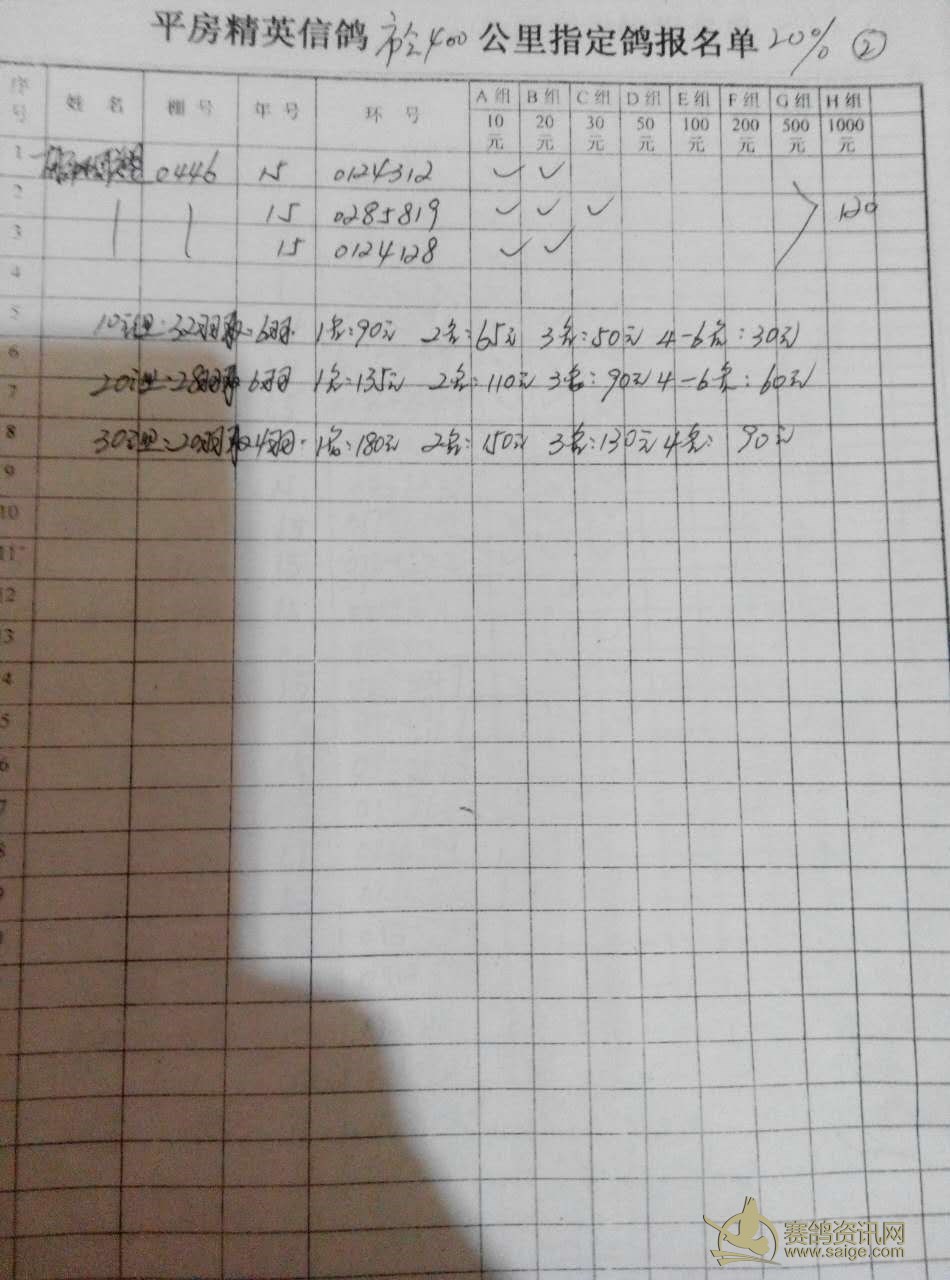 平房精英信鸽 市会400 公里指定鸽报名单 20% ②
序号 姓 名 棚 号 年 号 环 号 A组 B组 C组 D组 E组 F组 G组 H组
10元 20元 30元 50元 100元 200元 500元 1000元
1 0446 15 0124312 ✓ ✓
2 15 0285819 ✓ ✓ ✓ 120
3 15 0124128 ✓ ✓
4
5 10元 32羽取6羽 1名:90元 2名:65元 3名:50元 4-6名:30元
6
7 20元 28羽 6羽 1名:135元 2名:110元 3名:90元 4-6名:60元
8 30元 20羽取4羽 1名:180元 2名:150元 3名:130元 4名:90元
9
10
11
12
13
4
5
6
7
8
9
赛鸽资讯网
www.saige.com